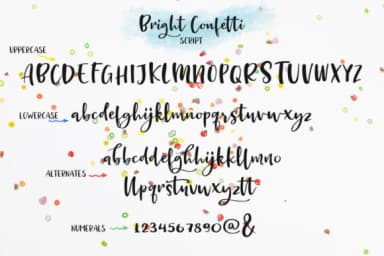 Bright Confetti
SCRIPT
UPPERCASE
ABCDEFGHIJKLMNOPQRSTUVWXYZ
LOWERCASE
abcdefghijklmnopqrstuvwxyz
ALTERNATES
abbcddefghhijkkllmno
Upqrstuvwxyztt
NUMERALS
1234567890@&